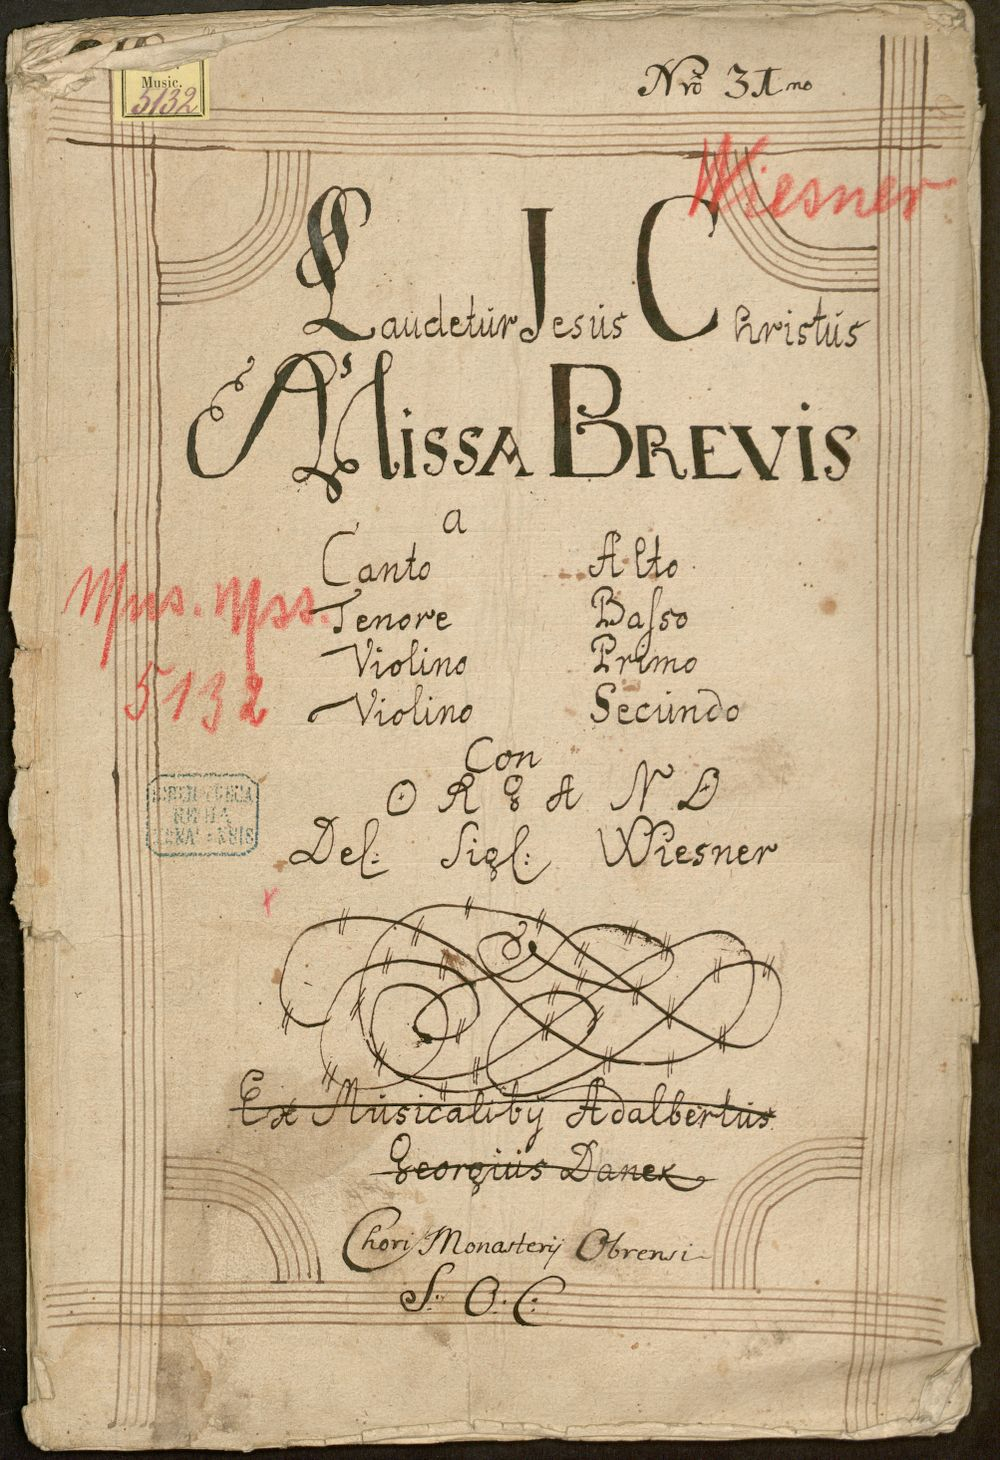 Music.
5132
Nrō 31mo
Wiesner
Laudetur Jesus Christus
Missa Brevis
a
Canto Alto
Tenore Baſso
Violino Primo
Violino Secundo
Con
ORGANO
Del: Sigl: Wiesner
Mus. Mss.
5132
BIBLIOTHECA
REGIA
Ex Musicaliby Adalbertus
Georgius Danek
Chori Monasterij Obrensi
S. O. C.